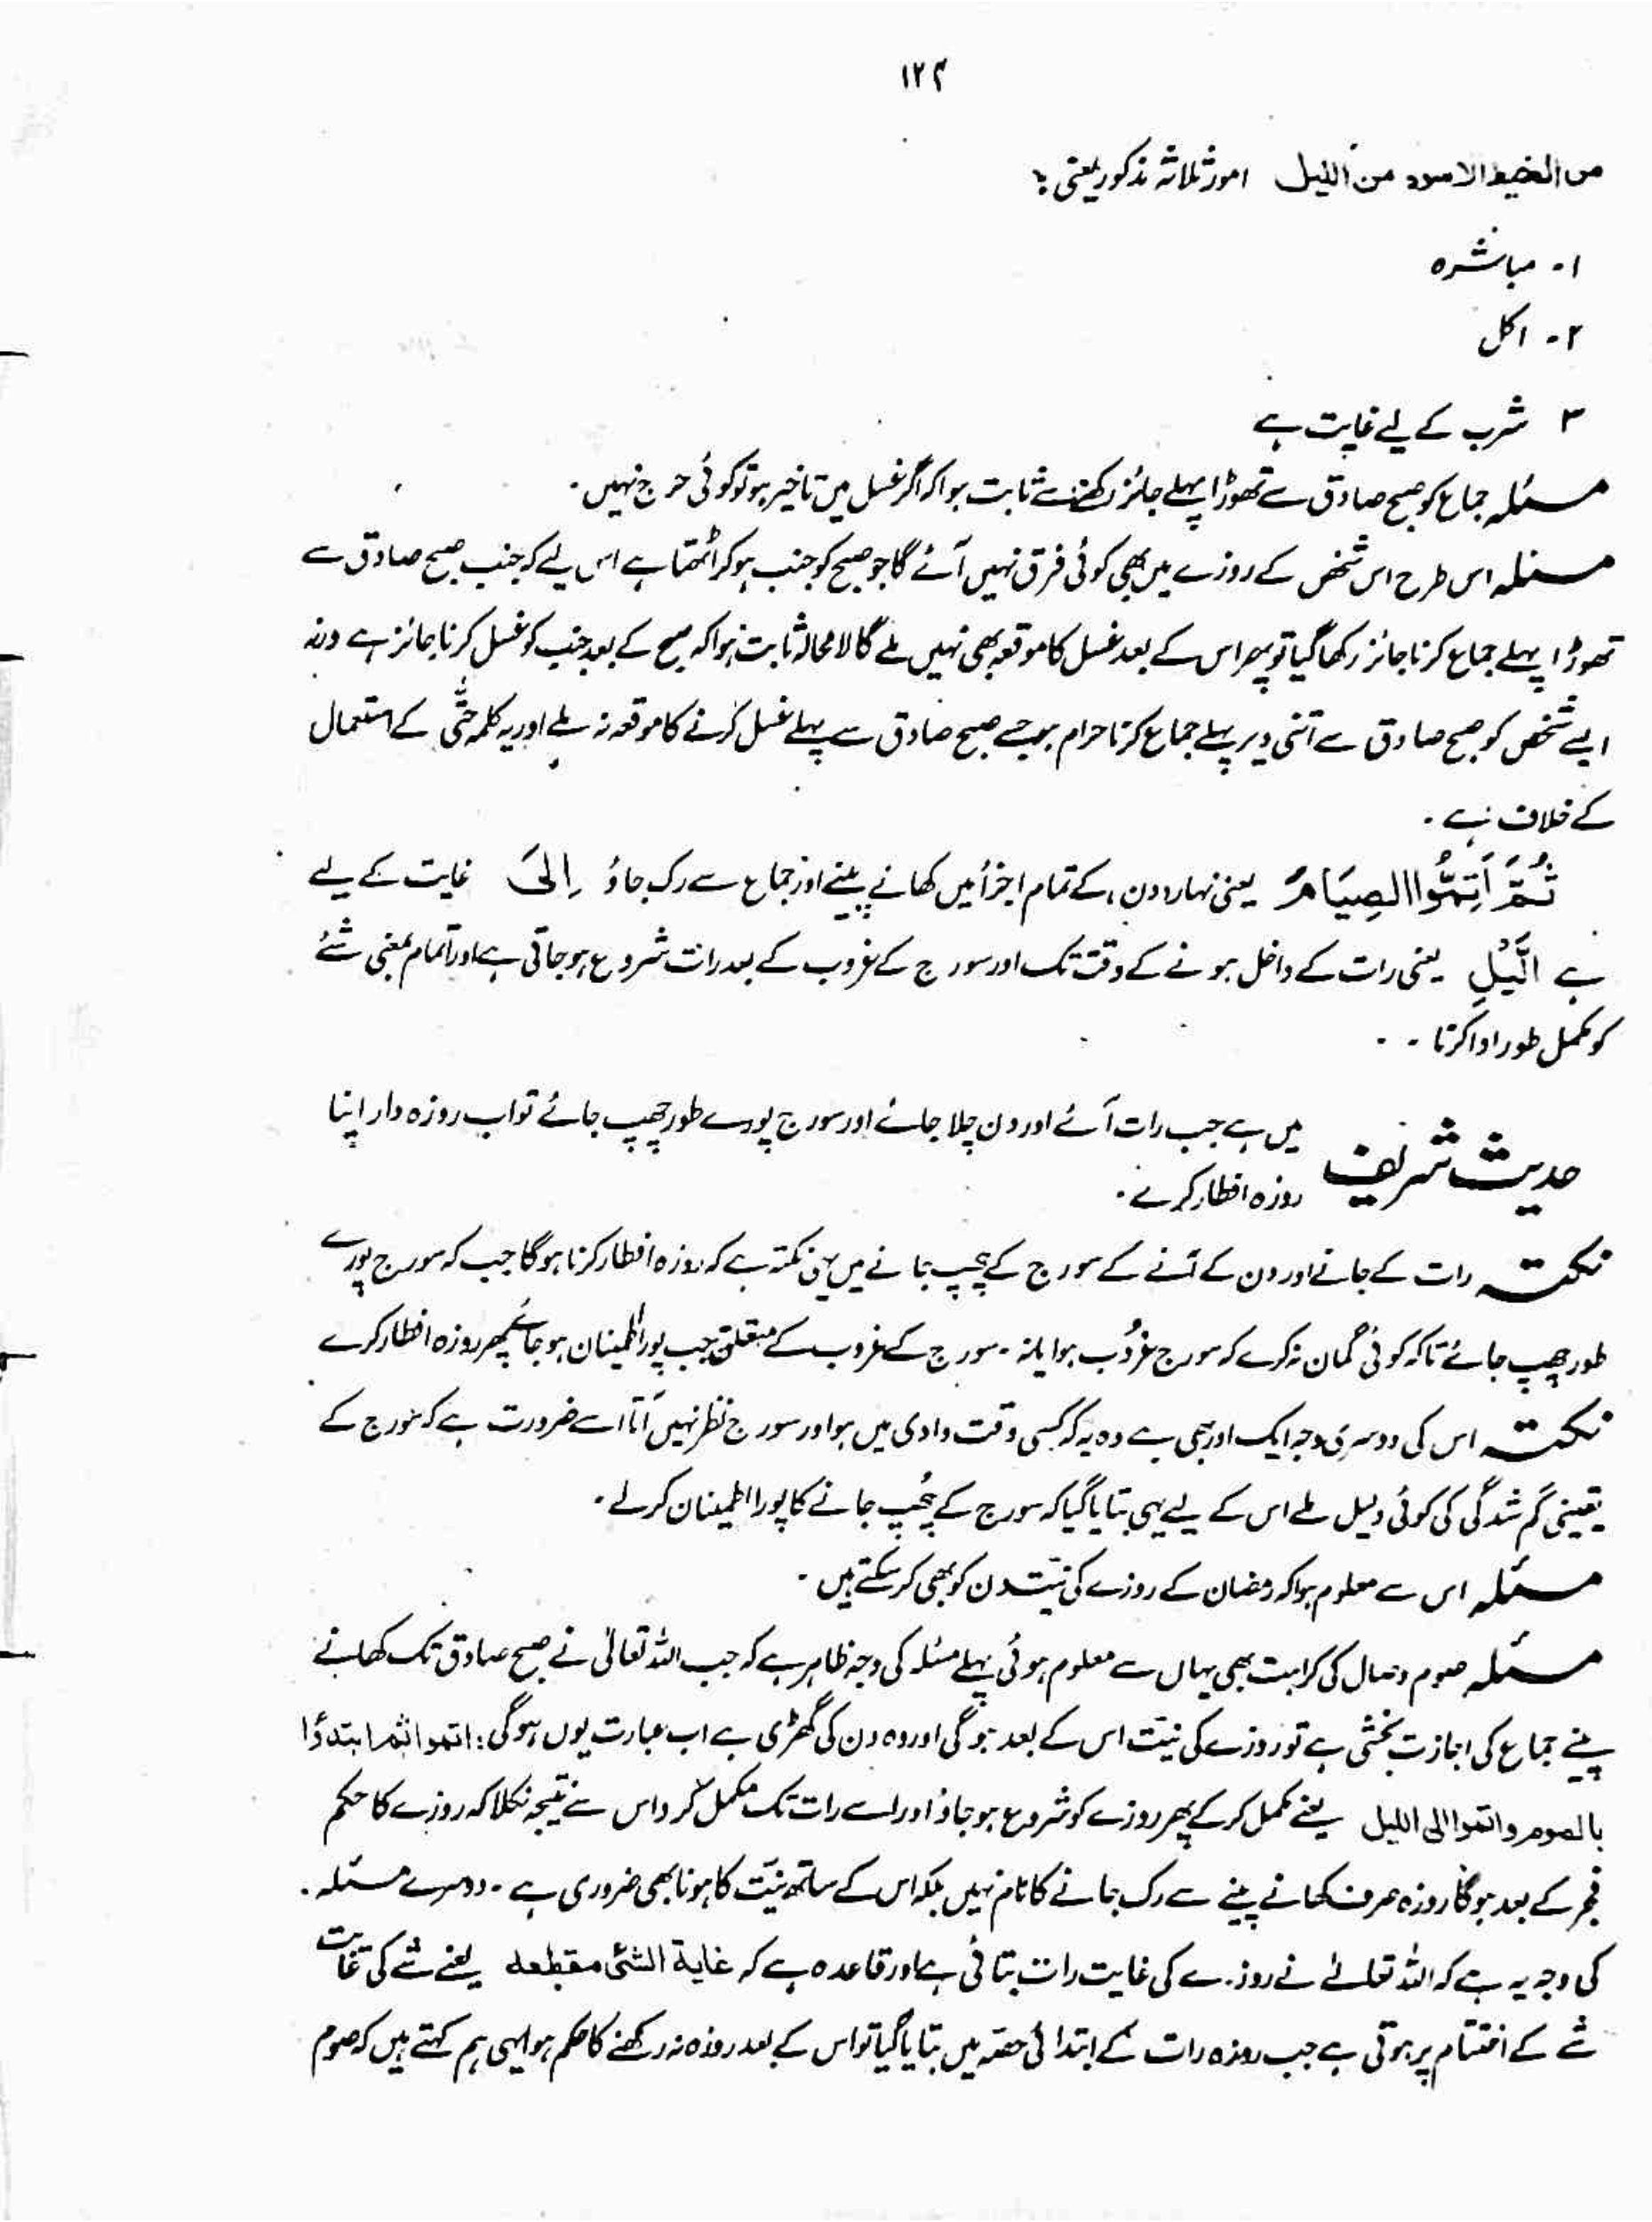 ۱۲۴
من الخیط الاسود من اللیل امور ثلاثہ مذکور یعنی :
۱۔ مباشرہ
۲۔ اکل
۳ شرب کے لیے غایت ہے
مسئلہ جماع کو صبح صادق سے تھوڑا پہلے جائز رکھنے سے ثابت ہوا کہ اگر غسل میں تاخیر ہو تو کوئی حرج نہیں۔
مسئلہ اس طرح اس شخص کے روزے میں بھی کوئی فرق نہیں آئے گا جو صبح کو جنب ہو کر اٹھتا ہے اس لیے کہ جنب صبح صادق سے
تھوڑا پہلے جماع کرنا جائز رکھا گیا تو پھر اس کے بعد غسل کا موقعہ بھی نہیں ملے گا لا محالہ ثابت ہوا کہ صبح کے بعد جنب کو غسل کرنا جائز ہے ورنہ
ایسے شخص کو صبح صادق سے اتنی دیر پہلے جماع کرنا حرام ہو جسے صبح صادق سے پہلے غسل کرنے کا موقعہ نہ ملے اور یہ کلمہ حتّٰی کے استعمال
کے خلاف ہے۔
ثُمَّ اَتِمُّوا الصِیَامَ یعنی نہار (دن) کے تمام اجزأ میں کھانے پینے اور جماع سے رک جاؤ اِلیَ غایت کے لیے
ہے الَّیْلِ یعنی رات کے داخل ہونے کے وقت تک اور سورج کے غروب کے بعد رات شروع ہو جاتی ہے اور اتمام بمعنی شئے
کو مکمل طور ادا کرنا ۔ ۔
حدیث شریف میں ہے جب رات آئے اور دن چلا جائے اور سورج پورے طور چھپ جائے تو اب روزہ دار اپنا
روزہ افطار کرے۔
نکتہ رات کے جانے اور دن کے آنے کے سورج کے چھپ جانے میں یہی نکتہ ہے کہ روزہ افطار کرنا ہوگا جب کہ سورج پورے
طور چھپ جائے تاکہ کوئی گمان نہ کرے کہ سورج غروُب ہوا یا نہ ۔ سورج کے غروب کے متعلق جب پورا اطمینان ہو جائے پھر روزہ افطار کرے
نکتہ اس کی دوسری وجہ ایک اور بھی ہے وہ یہ کہ کسی وقت وادی میں ہو اور سورج نظر نہیں آتا اسے ضرورت ہے کہ سورج کے
یقینی گم شدگی کی کوئی دلیل ملے اس کے لیے یہی بتایا گیا کہ سورج کے چھُپ جانے کا پورا اطمینان کر لے۔
مسئلہ اس سے معلوم ہوا کہ رمضان کے روزے کی نیّت دن کو بھی کر سکتے ہیں۔
مسئلہ صوم وصال کی کراہت بھی یہاں سے معلوم ہوئی پہلے مسئلہ کی وجہ ظاہر ہے کہ جب اللہ تعالیٰ نے صبح صادق تک کھانے
پینے جماع کی اجازت بخشی ہے تو روزے کی نیّت اس کے بعد ہوگی اور وہ دن کی گھڑی ہے اب عبارت یوں ہوگی : اتموا ثم ابتدؤا
بالصوم و اتموا الی اللیل یعنے مکمل کر کے پھر روزے کو شروع ہو جاؤ اور اسے رات تک مکمل کرو اس سے نتیجہ نکلا کہ روزے کا حکم
فجر کے بعد ہوگا روزہ صرف کھانے پینے سے رک جانے کا نام نہیں بلکہ اس کے ساتھ نیّت کا ہونا بھی ضروری ہے ۔ دوسرے مسئلہ ۔
کی وجہ یہ ہے کہ اللہ تعالےٰ نے روزے کی غایت رات بتائی ہے اور قاعدہ ہے کہ غایة الشئ مقطعه یعنے شے کی غایت
شے کے اختتام پر ہوتی ہے جب روزہ رات کے ابتدائی حصّہ میں بتایا گیا تو اس کے بعد روزہ نہ رکھنے کا حکم ہوا یہی ہم کہتے ہیں کہ صوم